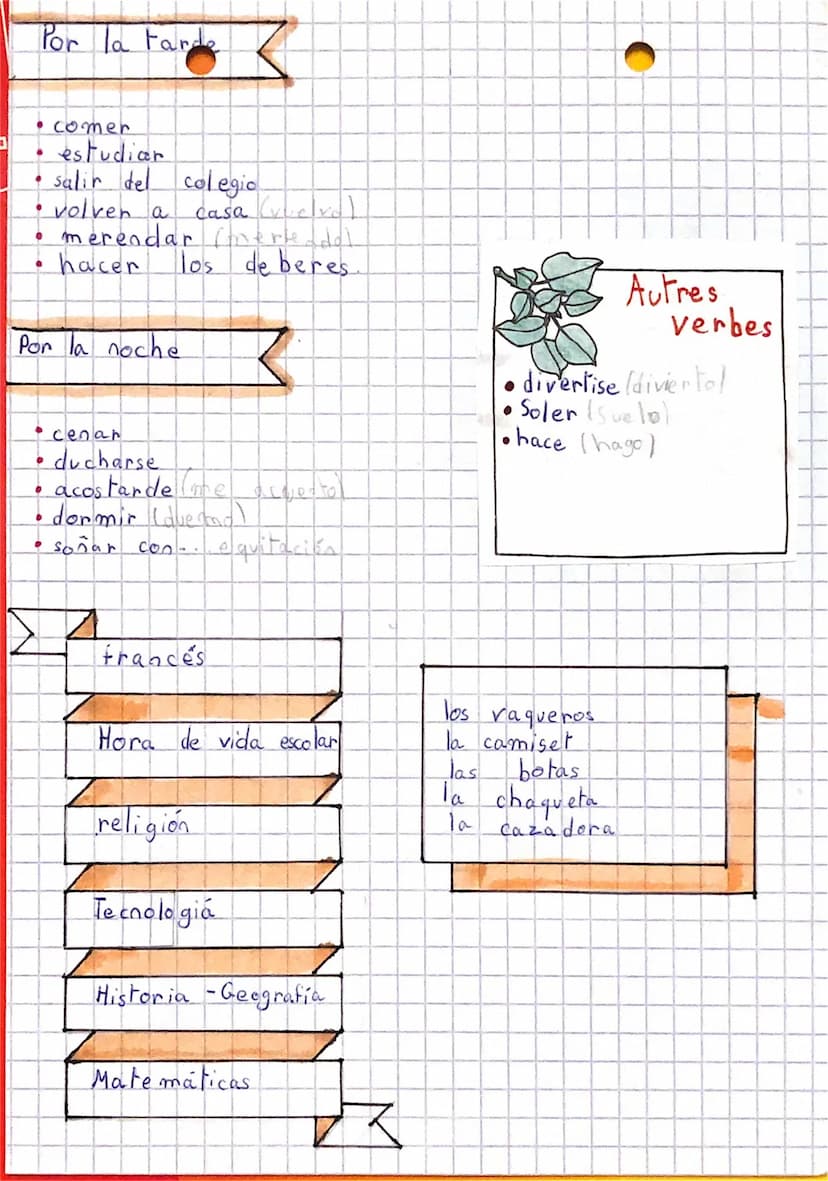 Por la tarde
• comer
• estudiar
• salir del colegio
• volver a casa (vuelvo)
• merendar (meriendo)
• hacer los deberes.
Por la noche
• cenar
• ducharse
• acostarde (me acuesto)
• dormir (duermo)
• soñar con... equitación
Autres
verbes
• divertise (divierto)
• Soler (suelo)
• hace (hago)
francés
Hora de vida escolar
religión
Tecnologiá
Historia - Geografía
Matemáticas
los vaqueros
la camiset
las botas
la chaqueta
la cazadora